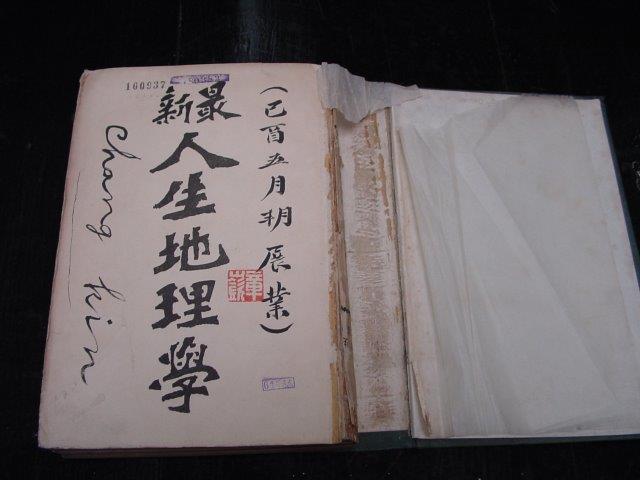 160937
(己酉五月朔展業)
最新
人生地理學
chang kin